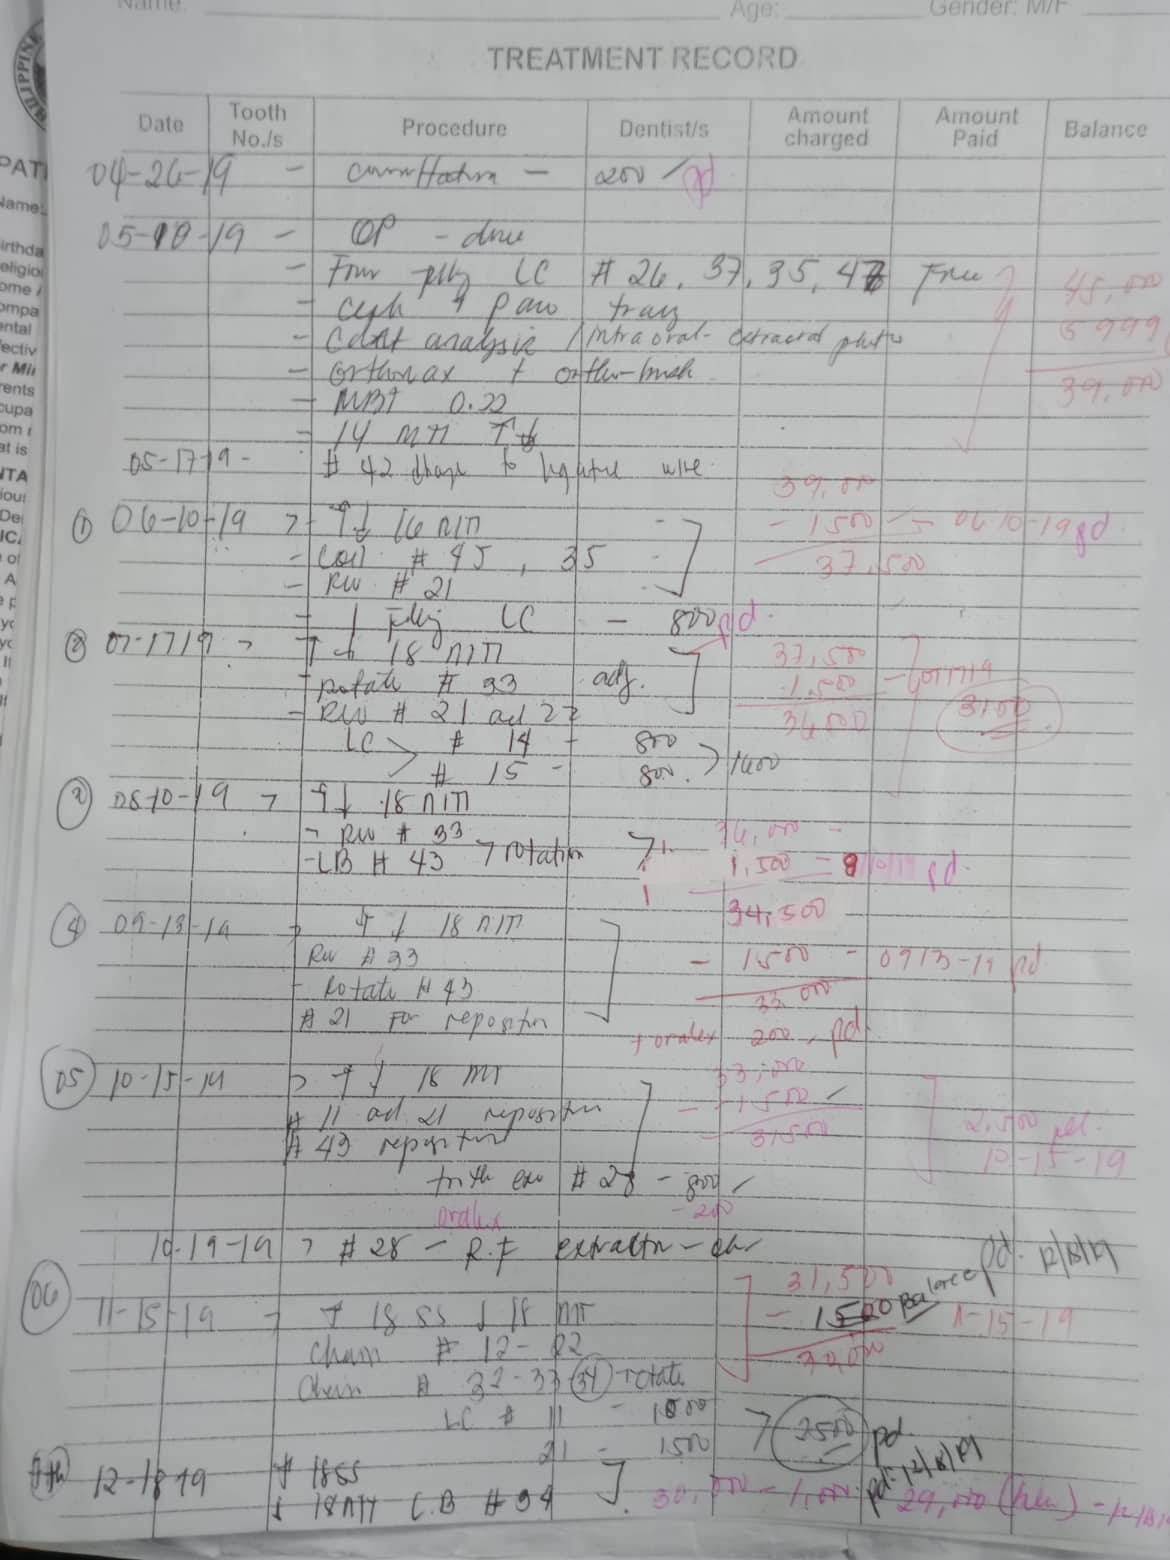 Name: Age: Gender: M/F
TREATMENT RECORD
Date Tooth No./s Procedure Dentist/s Amount charged Amount Paid Balance
04-26-19 - - 200 / pd
05-10-19 - OP - done
- Four LC # 26, 37, 35, 47 Free 45,000
- Ceph 4 pano 5999
- analysis / intraoral-extraoral photo
- orthowax + ortho-brush 39,000
- MBT 0.22
- 14 NITI ↑↓
05-17-19 - # 42 change to lighter wire
39,000
① 06-10-19 > ↑↓ 16 NITI - 1500 - 06-10-19 pd.
- coil # 45, 35 37,500
- RW # 21
- 1 LC - 800 pd.
② 07-17-19 > ↑↓ 18 NITI 37,500
rotate # 33 adj. 1,500 - 071719
- RW # 21 ad 22 36,000 3100
LC > # 14 - 800
# 15 - 800. > 1600
③ 08-10-19 > ↑↓ 18 NITI
- RW # 33 36,000 -
- LB # 43 > rotation 1,500 - pd.
34,500
④ 09-13-19 ↑↓ 18 NITI
RW # 33 - 1,500 - 0913-19 pd.
- Rotate # 43 33,000
# 21 For reposition + oralex 200 - pd
05 10-15-19 > ↑↓ 18 NITI 33,000
# 11 ad 21 reposition - 1500 ✓ 2,500 pd.
# 43 reposition 31500 10-15-19
tooth exo # 28 - 800 ✓
oralex - 200
10-19-19 > # 28 - R.F extraction -
pd. 12/18/19
06 31,500
11-15-19 ↑ 18 SS ↓ 18 NITI - 1500 Balance 11-15-19
chain # 12 - 22 30,000
chain # 32-33 (34) rotate
LC # 11 - 1000
21 - 1500 > 2500 pd.
7th 12-18-19 ↑ 18SS pd. 12/18/19
↓ 18NITI L.B # 34 30,000 - 1,000. 29,000